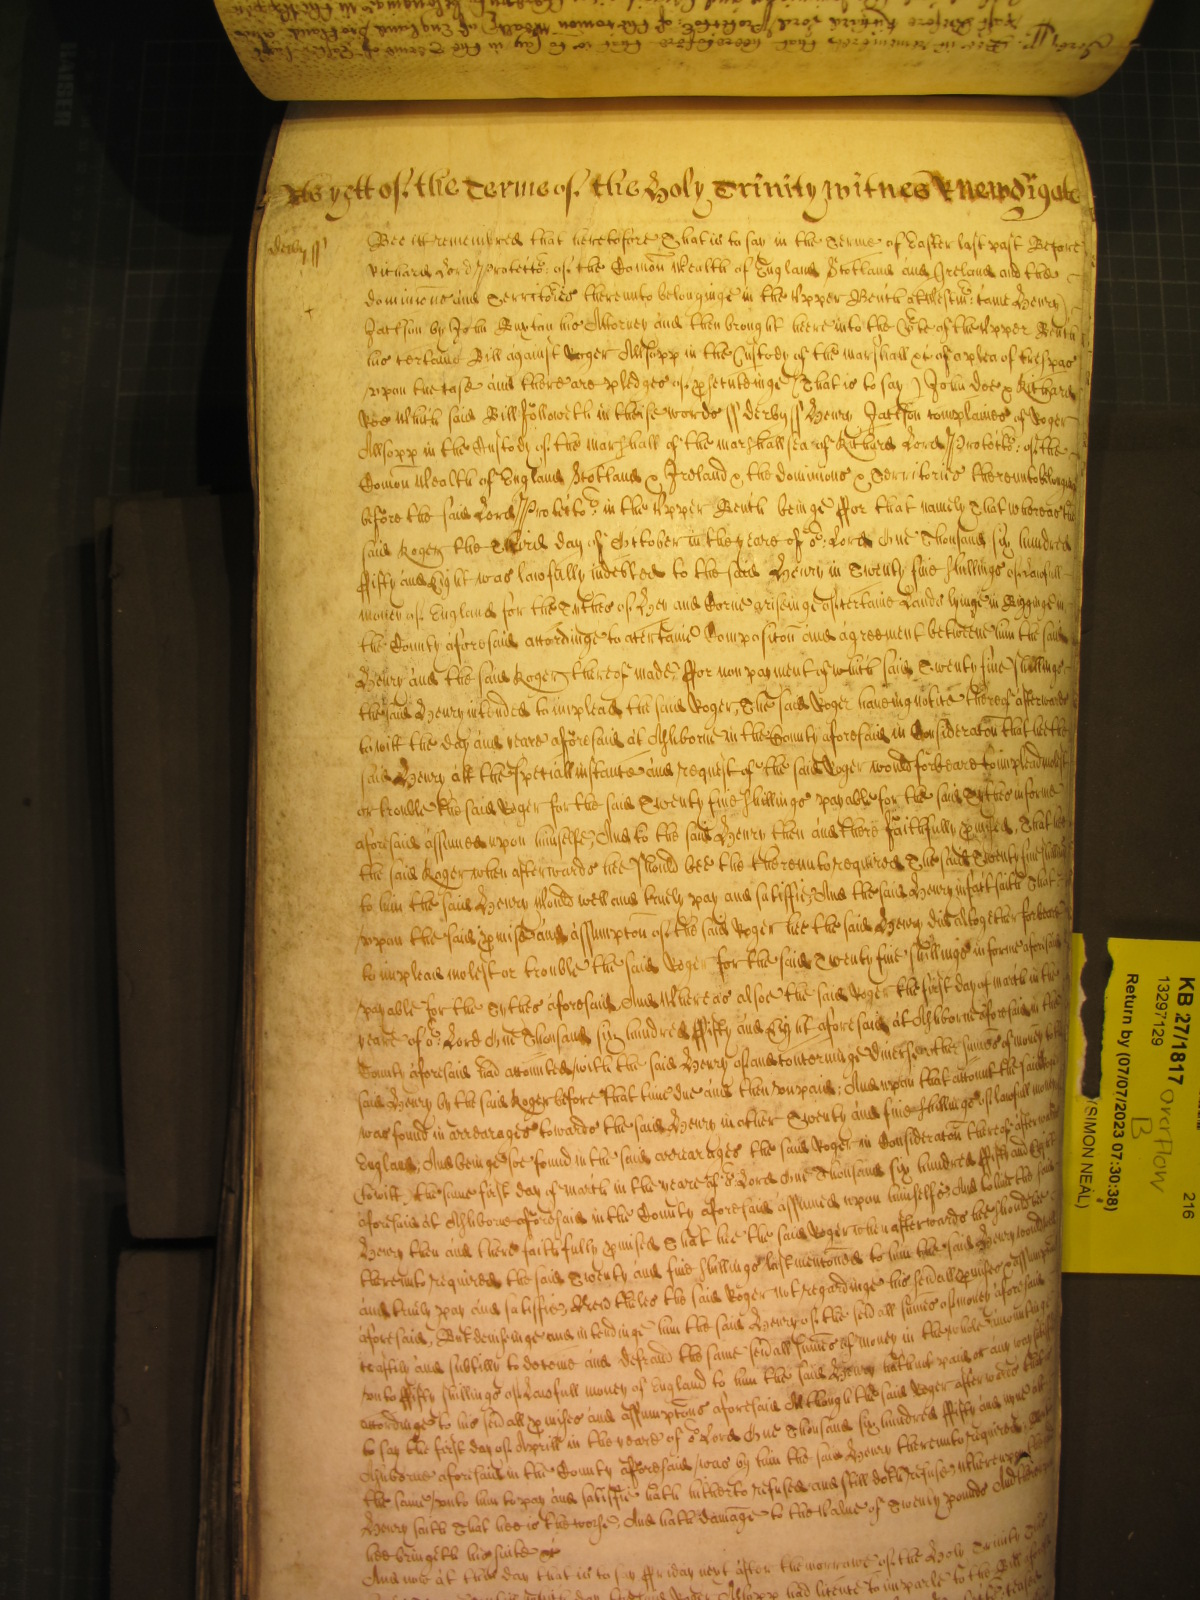 As yett of the Terme of the Holy Trinity witnes R Newdigate
Derby ss Bee itt remembred that heretofore That is to say in the Terme of Easter last past Before
Richard Lord Protector of the Comon Wealth of England Scotland and Ireland and the
dominions and Territories thereunto belonginge in the Upper Bench att Westm: came Henry
Jackson by John Buxton his Attorney and then brought here into the Co:te of the Upper Bench
his certaine Bill against Roger Allsopp in the Custody of the marshall &c of a plea of trespas
upon the case and there are pledges of p'secutinge (That is to say) John Doe & Richard
Roe Which said Bill followeth in these words ss derby ss Henry Jackson complaines of Roger
Allsopp in the Custody of the marshall of the marshallsea of Richard Lord Protecto:r of the
Comon Wealth of England Scotland & Ireland & the dominions & Territories thereunto belonginge
before the said Lord Protecto:r in the Upper Bench beinge ffor that namely That whereas the
said Roger the Third day of October in the yeare of o:r Lord One Thousand six hundred
ffifty and Eight was lawfully indebted to the said Henry in Twenty five shillings of lawfull
money of England for the Tythes of Hey and Corne ariseinge of certaine Lands lyinge in
the County aforesaid accordinge to a certaine Composicon and agreement betweene him the said
Henry and the said Roger thereof made, ffor non payment of which said Twenty five shillings
the said Henry intended to implead the said Roger, The said Roger haveing notice thereof afterwards
to witt the day and yeare aforesaid at Ashborne in the County aforesaid in Consideraton that hee the
said Henry att the speciall instance and request of the said Roger would forbeare to implead molest
or trouble the said Roger for the said Twenty five shillings payable for the said Tythes in forme
aforesaid assumed upon himselfe, And to the said Henry then and there faithfully p'mised, That hee
the said Roger when afterwards hee should bee the thereunto required The said Twenty five shillings
to him the said Henry Would well and truely pay and satisfie, And the said Henry in fact saith That
upon the said p'mise and assumpton of the said Roger hee the said Henry did altogether forbeare
to implead molest or trouble the said Roger for the said Twenty five shillings in forme aforesaid
payable for the Tythes aforesaid And Whereas alsoe the said Roger the first day of march in the
yeare of o:r Lord One Thousand six hundred ffifty and Eight aforesaid at Ashborne aforesaid in the
County aforesaid had accounted with the said Henry of and concerninge divers other summs of money to the
said Henry by the said Roger before that time due and then unpaid, And upon that account the said Roger
was found in arrearages towards the said Henry in other Twenty and five shillings of lawfull money
England, And beinge soe found in the said arrearages the said Roger in Consideraton thereof afterwards
towitt, the same first day of march in the yeare of o:r Lord One Thousand six hundred ffifty and Eight
aforesaid at Ashborne aforesaid in the County aforesaid assumed upon himselfe, And to him the said
Henry then and there faithfully p'mised That hee the said Roger when afterwards hee should bee
thereunto required the said Twenty and five shillings last mentoned to him the said Henry would well
and truely pay and satisfie, Neverthelesse the said Roger not regardinge his sev'all p'mises & assumptons
aforesaid, But deviseinge and intendinge him the said Henry of the sev'all summs of money aforesaid
craftily and subtilly to deceive and defraud the same sev'all summs of money in the whole amountinge
unto ffifty shillings of Lawfull money of England to him the said Henry hath not paid or any way satisfied
accordinge to his sev'all p'mises and assumptons aforesaid Although the said Roger afterwards That is
to say the first day of Aprill in the yeare of o:r Lord One Thousand six hundred ffifty and nyne att
Ashborne aforesaid in the County aforesaid was by him the said Henry thereunto required,
the same unto him to pay and satisfie hath hitherto refused and still doth refuse Whereupon the said
Henry saith That hee is the worse, And hath damage to the Value of Twenty pounds And thereupon
hee bringeth his suite &c
And now at this day that is to say ffriday next after the morrowe of the Holy Trinity
Roger Allsopp had licence to imparle to the Bill
KB 27/1817 overflow
13297129 B 216
Return by (07/07/2023 07:30:38)
(SIMON NEAL)